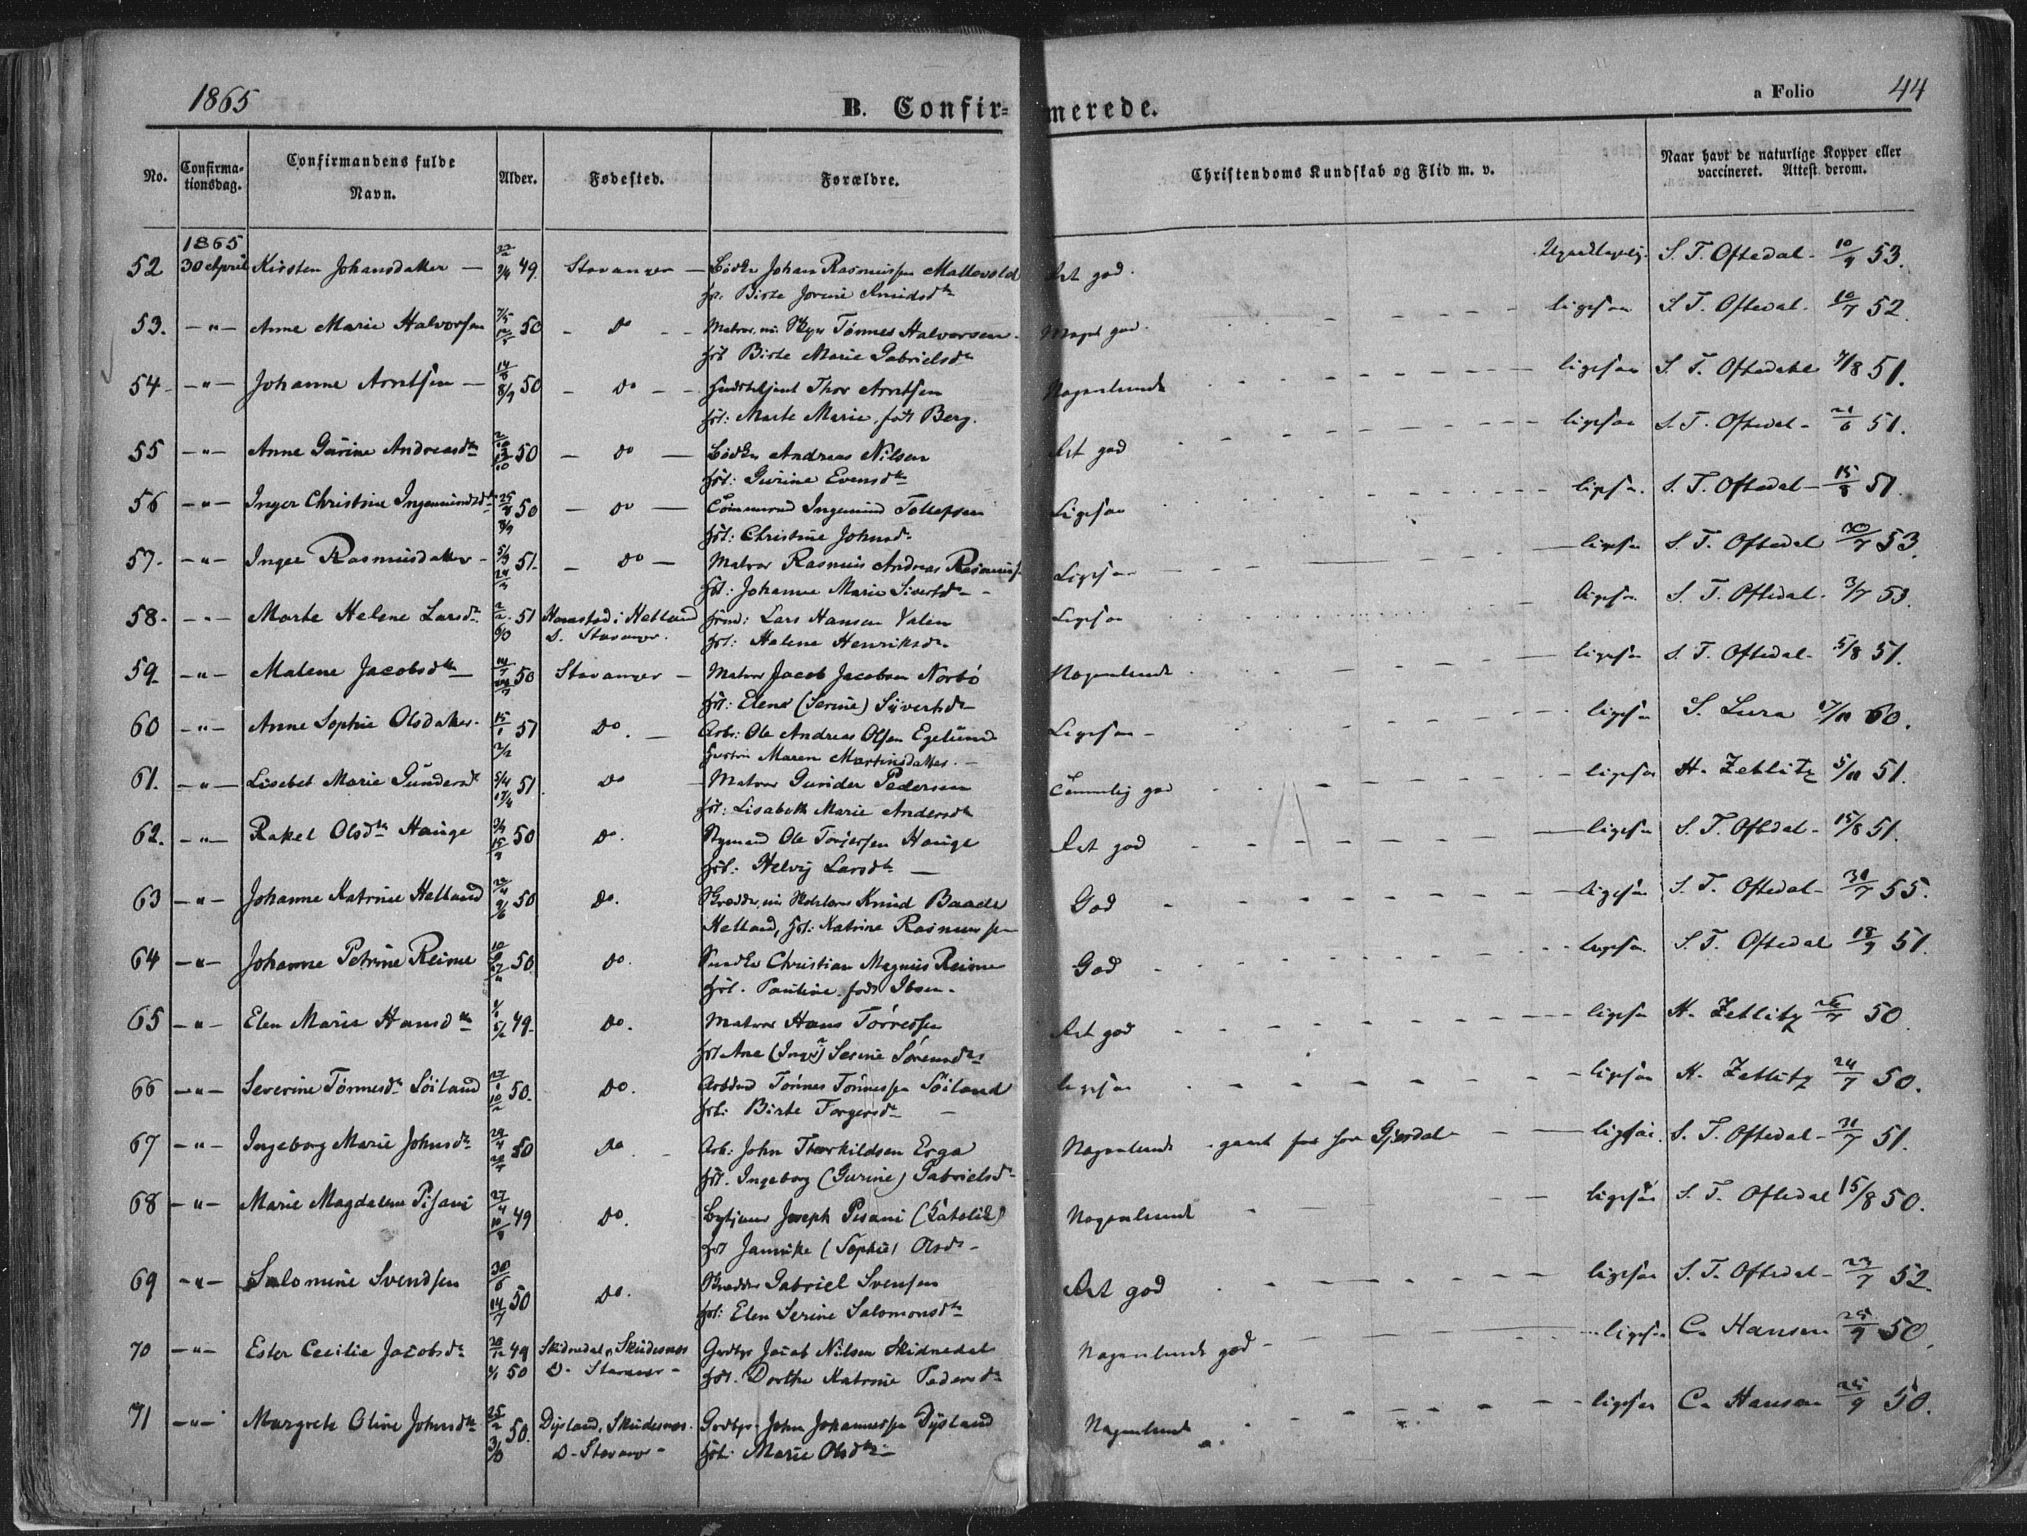 1865
B. Confir=merede.
a Folio 44
No. Confirma-tionsdag. Confirmandens fulde Navn. Alder. Fødested. Forældre. Christendoms Kundskab og Flid m. v. Naar havt de naturlige Kopper eller vaccineret. Attest derom.
1865
52 30 April Kirsten Johansdatter — 49. Stavanger — Johan Rasmussen Mallevold Ret god. S. T. Oftedal - 53.
Birte Jorine Knudsd
53. — " — Anne Marie Halvorsen 50 - Do - - Tønnes Halvorsen Meget god ligesaa S. T. Oftedal. 10/7 52.
Birte Marie Gabrielsd
54 - " - Johanne Arntsen — 50 - Do - - Thor Arntsen Nogenlunde ligesaa S. T. Oftedahl 51.
Marte Marie født Berg.
55 - " - Anne Gurine Andreasd 50 - Do — Andreas Nilsen Ret god ligesaa S. T. Oftedal - 21/6 51.
Gurine Evensd
56 - " - Inger Christine Ingemundsd 50 - Do — Ingemund Tollefsen Ligesaa ligesaa S. T. Oftedal - 15/8 51.
Christine Johnsd
57. - " - Inger Rasmusdatter - 51. - Do - Matros Rasmus Andreas Rasmuss Ligesaa ligesaa S. T. Oftedal 30/7 53.
Johanne Marie Sivertsd
58. - " - Marte Helene Larsd 51 i Hetland Lars Hansen Valen Ligesaa ligesaa S. T. Oftedal. 3/7 53.
S. Stavanger. Helene Henriksd
59. - " - Malene Jacobsd — 50 Stavanger — Matros Jacob Jacobsen Norbø Nogenlunde ligesaa S. T. Oftedal. 5/8 51.
Elene (Serine) Sivertsd
60 - " - Anne Sophie Olsdatter. 15/1 51 Do. — Arb: Ole Andreas Olsen Egelund Ligesaa - ligesaa S. Lura 60.
Hustru Maren Martinsdatter. -
61. - " - Lisebet Marie Gunders 5/4 51 Do Matros Gunder Pedersen Temmelig god ligesaa H. Zetlitz 51.
Lisabeth Marie Andersd
62. - " - Rakel Olsd Hauge 50 Do. Ole Torgersen Hauge Ret god ligesaa S. T. Oftedal - 15/8 51.
Helvig Larsd —
63 - " - Johanne Katrine Helland 50 Do. Knud Baade God ligesaa S. T. Oftedal - 55.
Helland, Katrine Rasmuss
64 - " - Johanne Petrine Reime 50 Do. Christian Magnus Reime God ligesaa S. T. Oftedal 18/9 51.
Pauline født Ibsen.
65 - " - Elen Marie Hansd 49. Do. Matros Hans Tørressen Ret god ligesaa H. Zetlitz 50
Ane (Inger) Serine Sørensd
66 - " - Severine Tønnesd Søiland 50. Do. Tønnes Tønnessen Søiland ligesaa ligesaa H. Zetlitz 24/7 50.
Birte Torgersd —
67 - " - Ingeborg Marie Johnsd 50 Do Arb: John Thorkildsen Erga Nogenlunde ligesaa S. T. Oftedal - 31/7 51.
Ingeborg (Gurine) Gabrielsd
68 - " - Marie Magdalene Pisani 27/4 49 Do. Joseph Pisani (Katolik) Nogenlunde ligesaa S. T. Oftedal 15/8 50.
(Sophie) Olsd
69 - " - Salomine Svendsen 30/6 14/7 50 Do. Gabriel Svensen Ret god ligesaa S. T. Oftedal - 23/7 52.
Elen Serine Salomonsd
70 - " - Ester Cecilie Jacobsd 49 Skidnedal, Skudesnes Jacob Nilsen Skidnedal Nogenlunde god - ligesaa C. Hansen 25/9 50.
50 D. Stavanger - Dorthe Katrine Pedersd
71 - " - Margrete Oline Johnsd 50. Dysland, Skudesnes. John Johannessen Dysland Nogenlunde ligesaa C. Hansen 25/9 50.
D. Stavanger - Marie Olsd